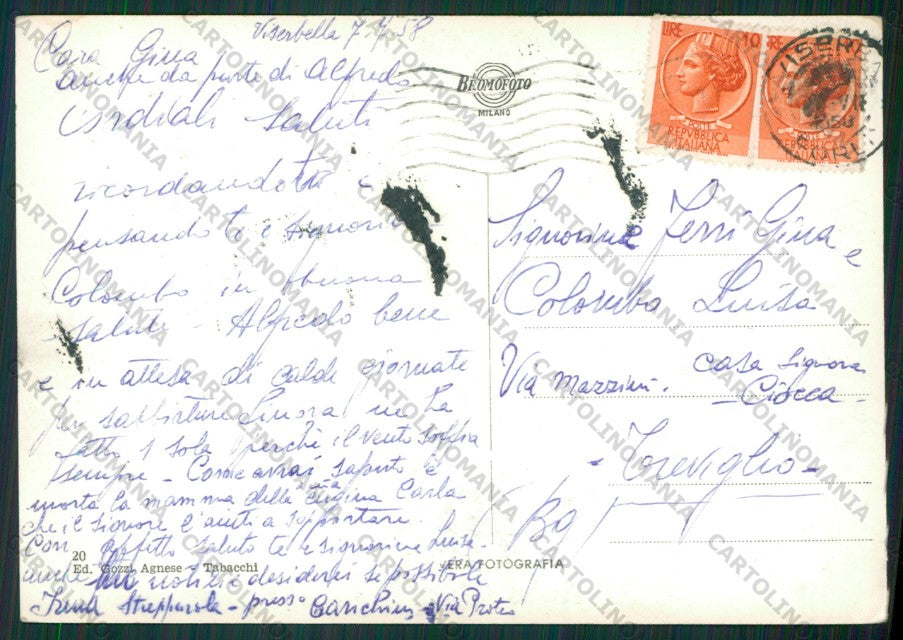 Viserbella 7 7 58
Cara Gina
anche da parte di Alfredo
Cordiali Saluti
ricordandoti e
pensando te e signora
Colombo in buona
salute - Alfredo bene
e in attesa di calde giornate
per sabbiature finora ne ha
fatto 1 sola perchè il vento soffia
sempre - Come avrai saputo è
morta la mamma della cugina Carla
che il Signore l'aiuti a sopportare.
Con affetto saluto te e Signorina Luisa -
anche tue notizie desidererei se possibile
presso Via
BROMOFOTO
MILANO
LIRE 10
POSTE
REPVBBLICA
ITALIANA
Signorine Ferri Gina e
Colomba Luisa
Via Mazzini. casa Signora
- Ciocca -
- Treviglio -
Bg
20
Ed. Gozzi Agnese - Tabacchi
VERA FOTOGRAFIA
CARTOLINOMANIA